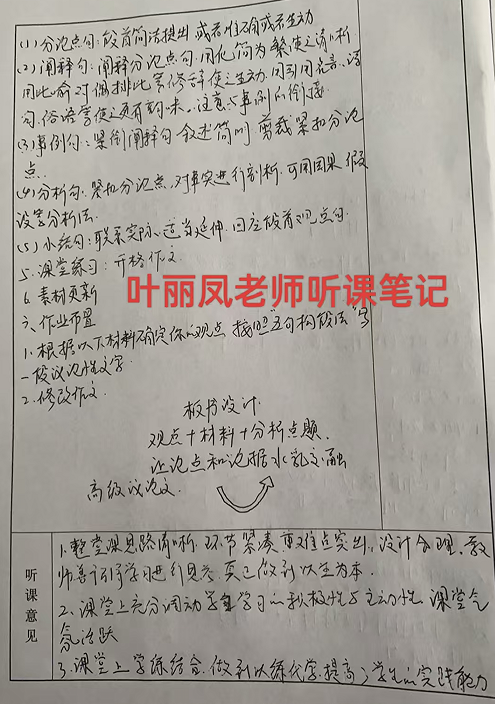 (1) 分论点句：段首简洁提出，或者准确或者生动
(2) 阐释句：阐释分论点句，用化简为繁使之清晰
用比喻对偶排比等修辞使之生动，用引用名言、诗
句、俗语等使之更有韵味。注意与事例的衔接
(3) 事例句：紧衔阐释句 叙述简明 剪裁紧扣分论
点.
(4) 分析句：紧扣分论点，对事实进行剖析，可用因果 假
设等分析法.
(5) 小结句：联系实际，适当延伸，回应段首观点句.
5. 课堂练习：升格作文
6. 素材更新
叶丽凤老师听课笔记
六、作业布置
1. 根据以下材料确定你的观点，按照"五句构段法"写
一段议论性文字.
2. 修改作文.
板书设计
观点＋材料＋分析点题.
让论点和论据水乳交融
高级议论文.
听课意见
1. 整堂课思路清晰. 环节紧凑 重难点突出，设计合理. 教
师善于引导学习进行思考，真正做到以生为本.
2. 课堂上充分调动学生学习的积极性与主动性 课堂气
氛活跃
3. 课堂上学练结合. 做到以练代学，提高了学生的实践能力